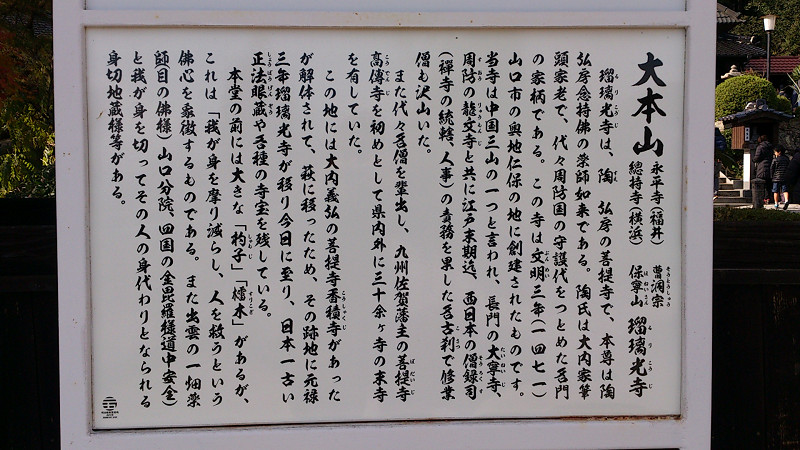 大本山 永平寺(福井) 曹洞宗
總持寺(横浜) 保寧山 瑠璃光寺
瑠璃光寺は、陶 弘房の菩提寺で、本尊は陶
弘房念持佛の薬師如来である。陶氏は大内家筆
頭家老で、代々周防国の守護代をつとめた名門
の家柄である。この寺は文明三年(一四七一)
山口市の奥地仁保の地に創建されたものです。
当寺は中国三山の一つと言われ、長門の大寧寺、
周防の龍文寺と共に江戸末期迄、西日本の僧録司
(禅寺の統轄、人事)の責務を果した名古刹で修業
僧も沢山いた。
また代々名僧を輩出し、九州佐賀藩主の菩提寺
高傳寺を初めとして県内外に三十余ヶ寺の末寺
を有していた。
この地には大内義弘の菩提寺香積寺があった
が解体されて、萩に移ったため、その跡地に元禄
三年瑠璃光寺が移り今日に至り、日本一古い
正法眼蔵や各種の寺宝を残している。
本堂の前には大きな「杓子」「櫺木」があるが、
これは「我が身を摩り減らし、人を救うという
佛心を象徴するものである。また出雲の一畑薬
師(目の佛様)山口分院、四国の金毘羅様(道中安全)
と我が身を切ってその人の身代わりとなられる
身切地蔵様等がある。